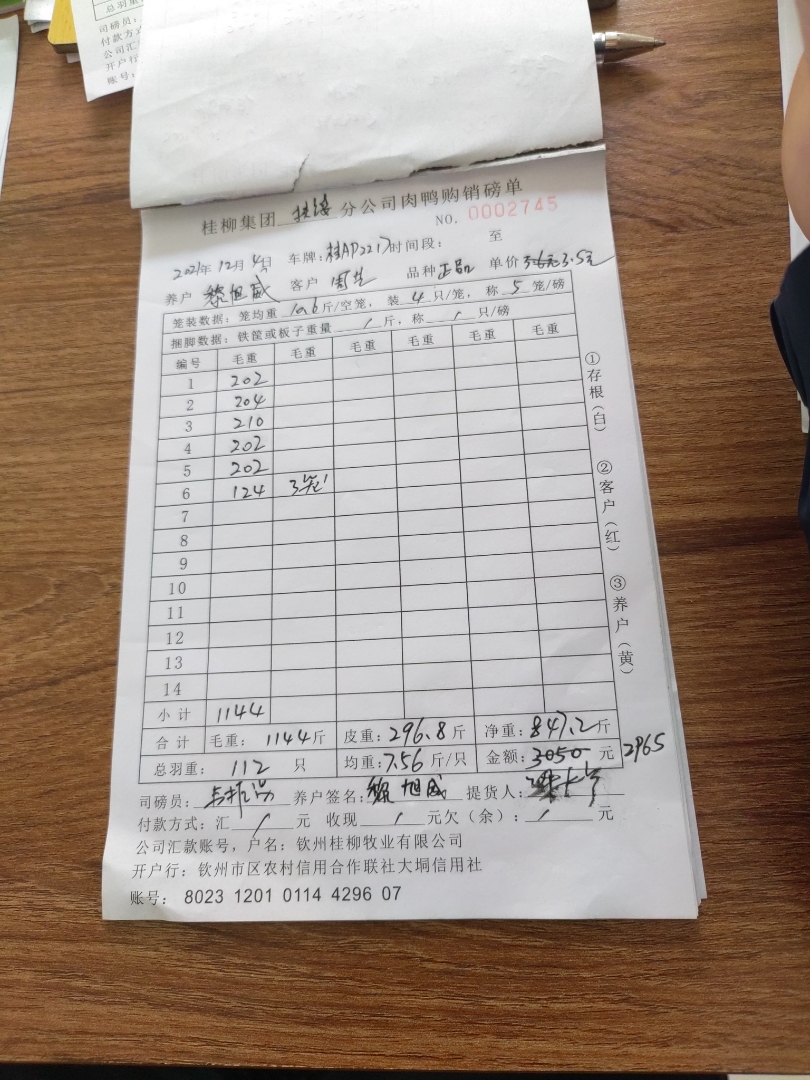 总羽重
司磅员：
付款方式
公司汇
开户行
账号：
桂柳集团 扶绥 分公司肉鸭购销磅单
NO. 0002745
2021年12月4日 车牌：桂AP2217 时间段： 至
养户 黎旭威 客户 周兰 品种 正品 单价 3.6元 3.5元
笼装数据：笼均重 10.6 斤/空笼，装 4 只/笼，称 5 笼/磅
捆脚数据：铁筐或板子重量 / 斤，称 / 只/磅
编号 毛重 毛重 毛重 毛重 毛重 毛重
1 202
2 204
3 210
4 202
5 202
6 124 3笼
7
8
9
10
11
12
13
14
小计 1144
合计 毛重：1144斤 皮重：296.8斤 净重：847.2斤
总羽重：112 只 均重：7.56斤/只 金额：3050 元 2965
司磅员： 养户签名：黎旭威 提货人：
付款方式：汇 / 元 收现 / 元欠（余）： / 元
公司汇款账号，户名：钦州桂柳牧业有限公司
开户行：钦州市区农村信用合作联社大垌信用社
账号：8023 1201 0114 4296 07
①存根（白）
②客户（红）
③养户（黄）